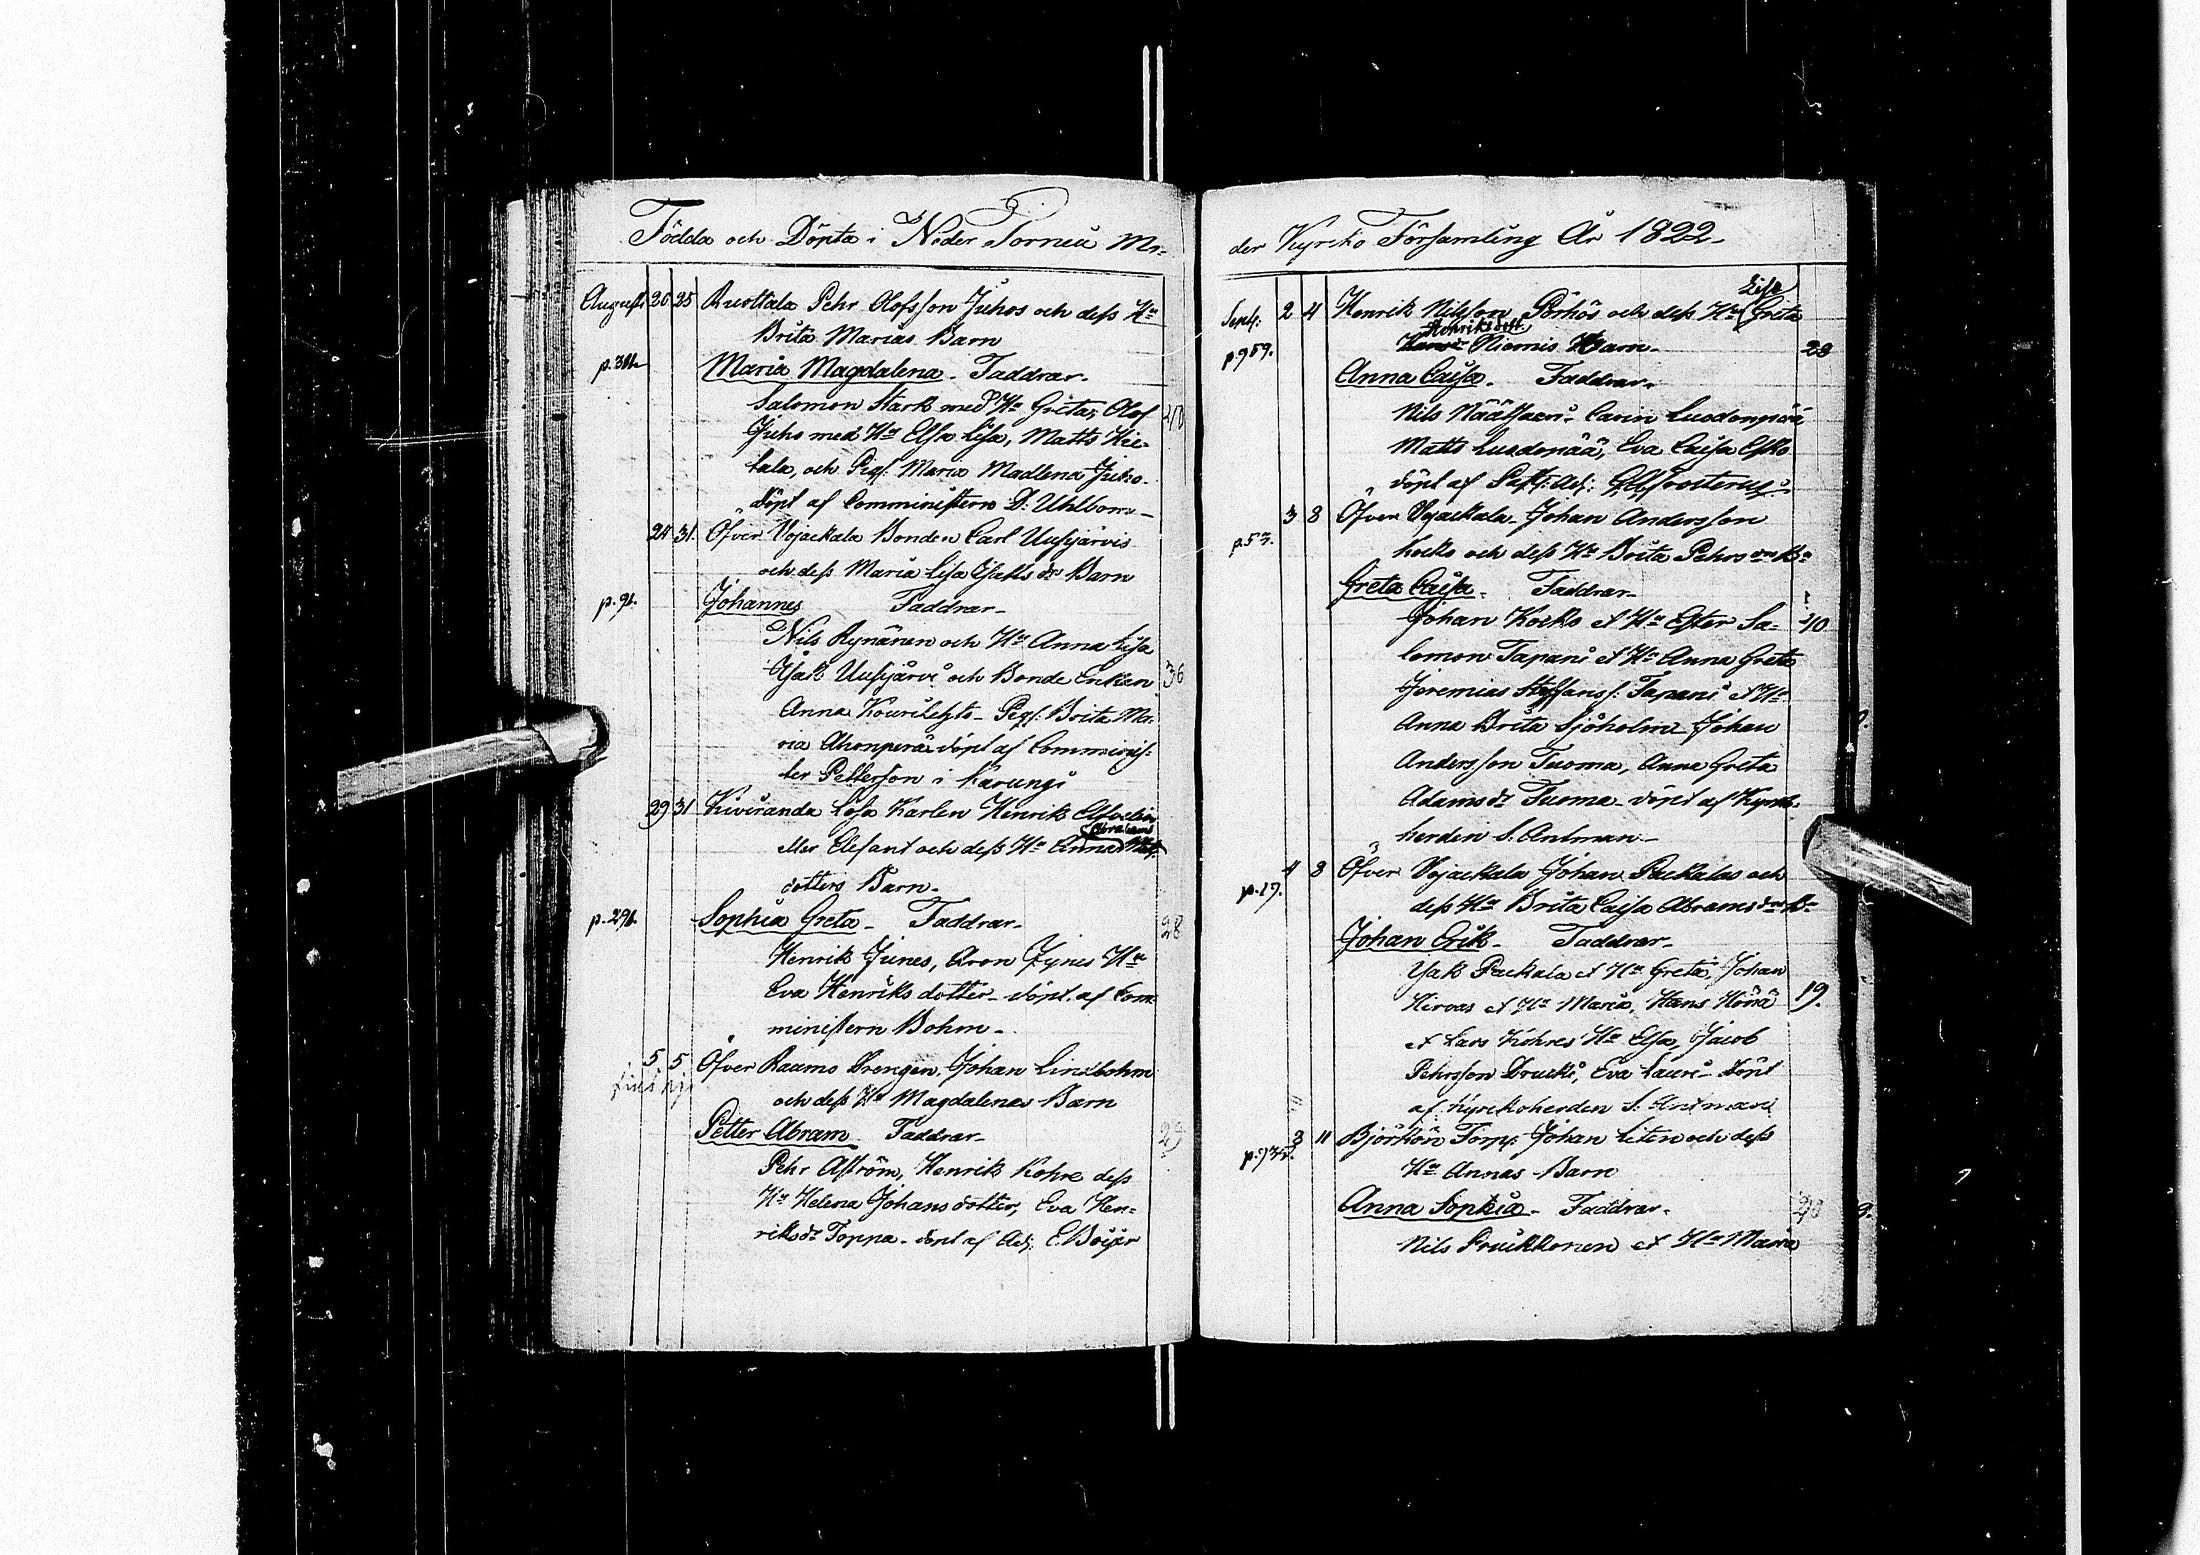 Födda och Döpta i Neder Torneå Mo-
August 20 25 Ruottala Pehr Olofsson Juhos och dess Hu
Brita Marias Barn
Maria Magdalena - Faddrar -
Salomon Stark med Hu Greta, Olof 40
Juho med Hu Elsa Lisa, Matts Kie-
tala, och Pig: Maria Madlena Juho
döpt af Comministern D: Uhlbom -
24 31 Öfver Vojackala Bonden Carl Uusijärvis
och dess Maria Lisa Isaks dr Barn
p. 91. Johannes Faddrar -
Nils Rynänen och Hu Anna Lisa
Isak Uusijärvi och Bonde Enkan 36
Anna Kourilehto - Pig: Brita Ma-
ria Ahonperä döpt af Comminis-
ter Petterson i Karungi
29 31 Kiviranda Lösa Karlen Henrik
Abrahams
eller Elefant och dess Hu Anna
dotters Barn -
p. 291. Sophia Greta - Faddrar - 28
Henrik Junes, Aron Jynes Hu
Eva Henriks dotter - döpt af Com-
ministern Bohm -
5 5 Öfver Raumo Drengen Johan Lindbohm
och dess Hu Magdalenas Barn
Petter Abram Faddrar - 29
Pehr Aström, Henrik Kohre dess
Hu Helena Johans dotter, Eva Hen-
riks dr Toppa - döpt af Adj: E. Böijer
der Kyrko Församling År 1822 -
Lisa
Sept: 2 4 Henrik Nilsson Pörhös och dess Hu Greta
Henriksdott
p. 959. Niemis Barn - 28
Anna Caisa - Faddrar -
Nils Carin
Matts Eva Caisa Esko
döpt af Adj:
3 8 Öfver Vojackala Johan Andersson
p. 53. Kocko och dess Hu Brita Pehrs drs Bn
Greta Caisa - Faddrar -
Johan Kocko et Hu Ester Sa- 40
lomon Tapani et Hu Anna Greta
Jeremias Staffanss: Tapani et Hu
Anna Brita Sjöholm Johan
Andersson Tuoma, Anna Greta
Adams dr Tuoma - döpt af Kyrko-
herden S. Antman -
4 8 Öfver Vojackala Johan Packalas och
p. 19. dess Hu Brita Caisa Abrams drs Bn
Johan Erik - Faddrar -
Isak Packala et Hu Greta, Johan
Hirvas et Hu Maria, Hans Hörä 19.
et Lars Kohres Hu Elsa, Jacob
Pehrsson Eva Lauri - döpt
af Kyrckoherden S. Antman
3 11 Björkön Torp: Johan Liten och dess
Hu Annas Barn
Anna Sophia - Faddrar -
Nils et Hu Maria